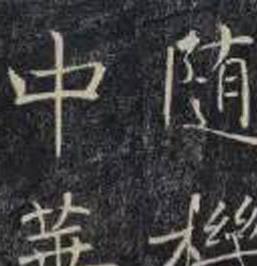 随機
中華